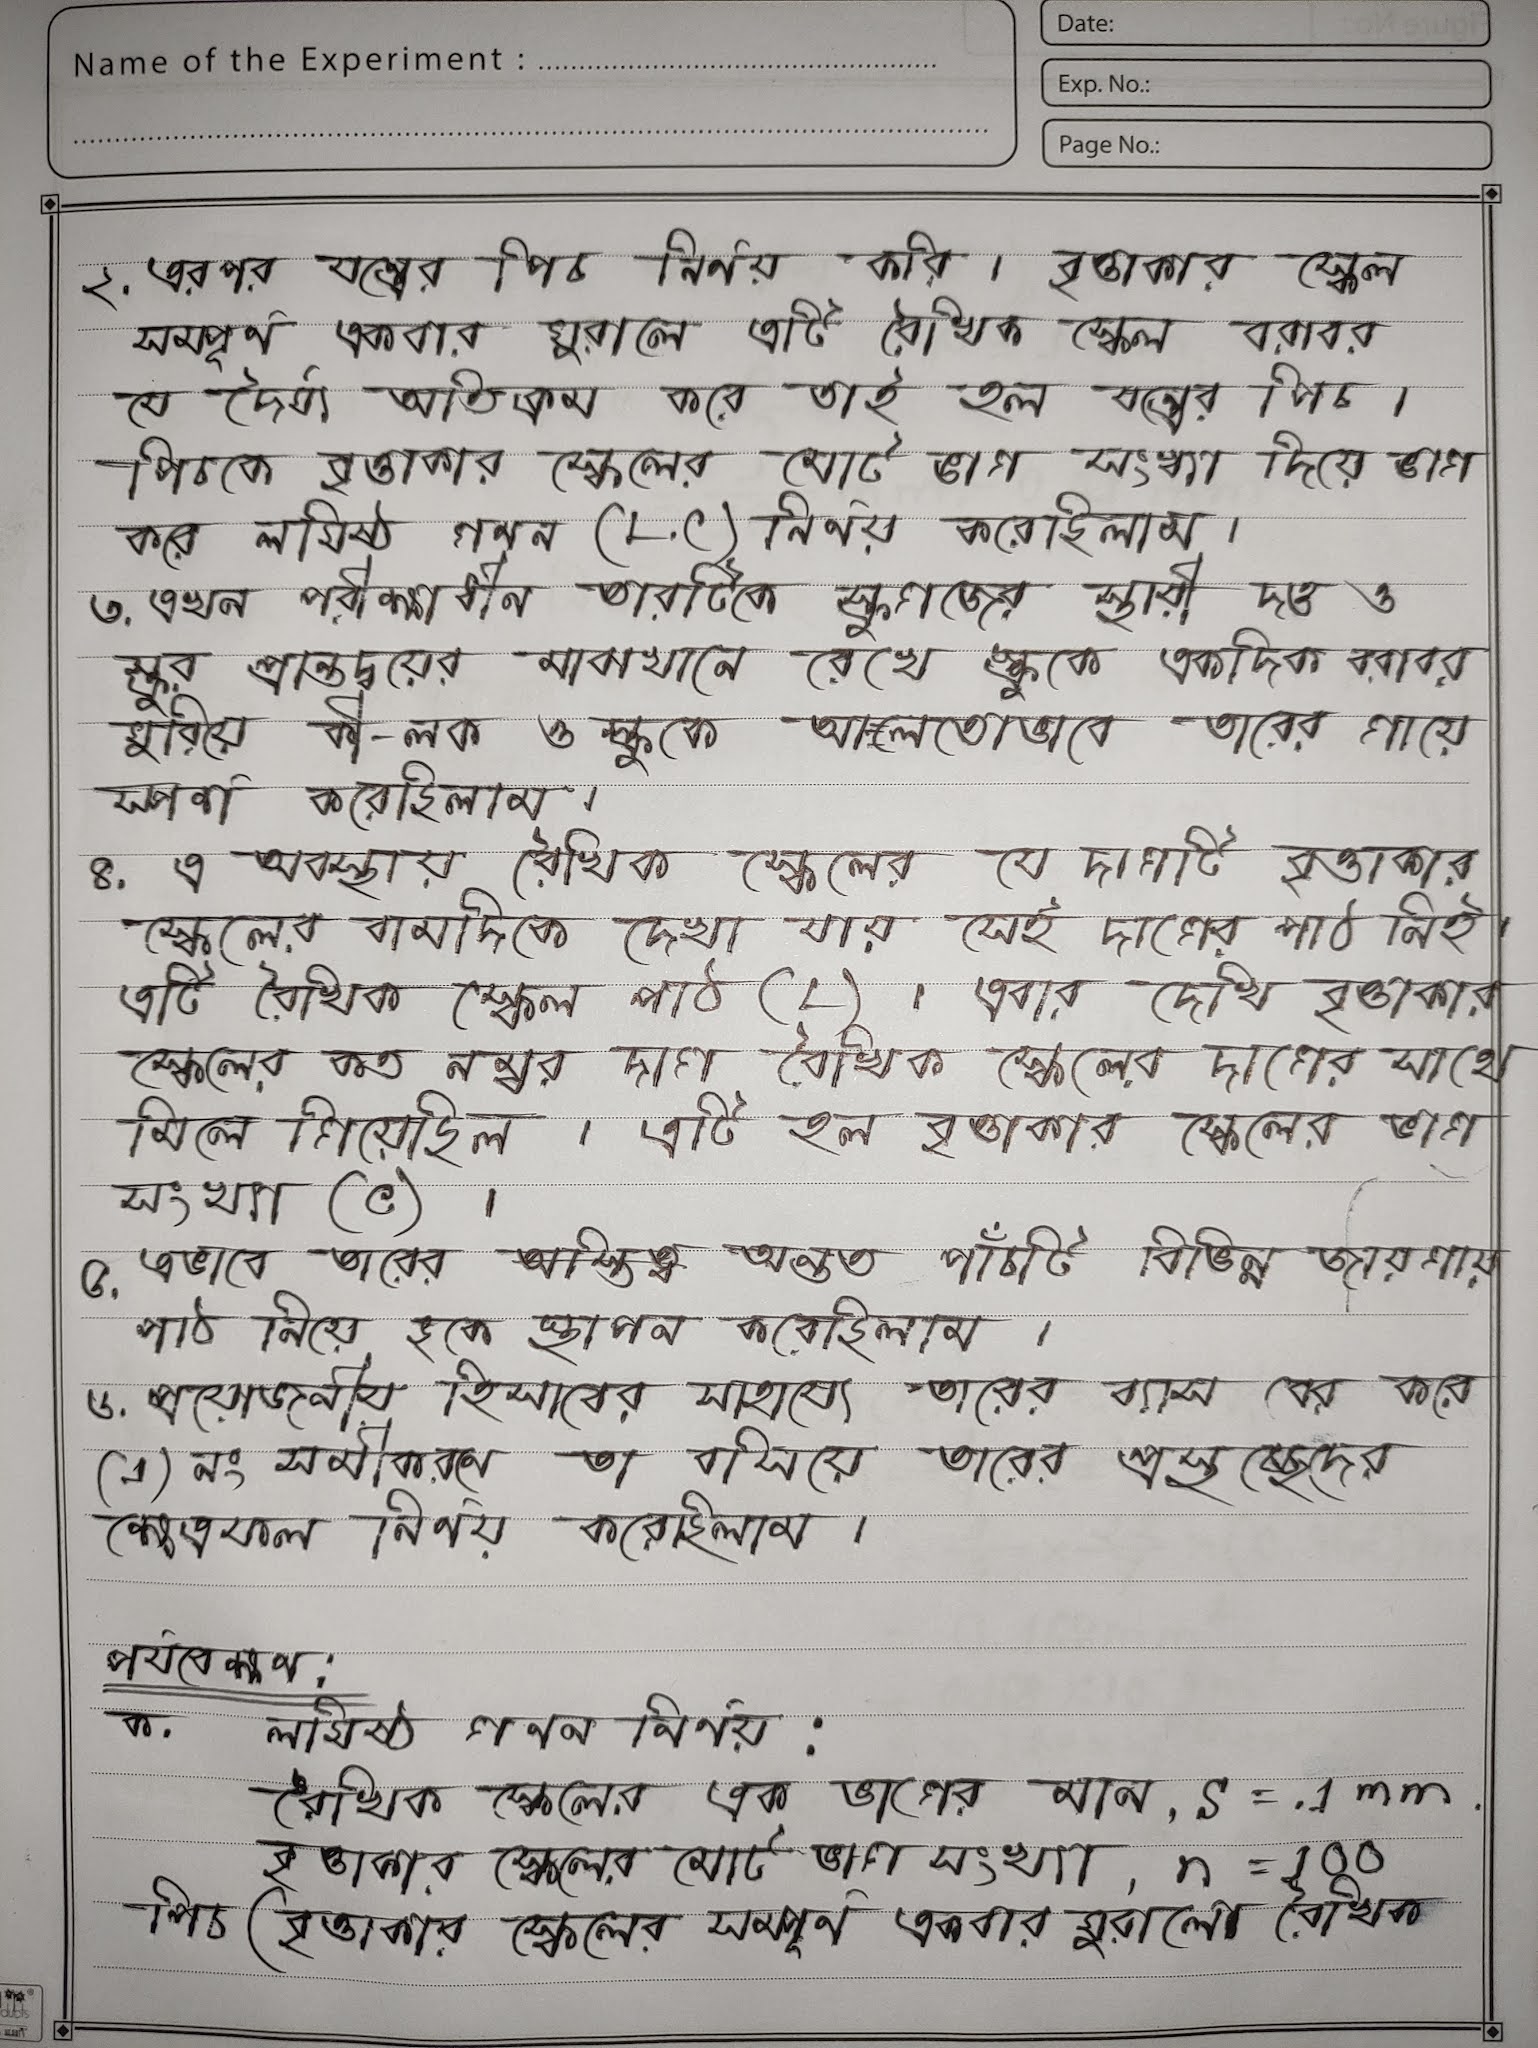 Name of the Experiment :
Date:
Exp. No.:
Page No.:
২. এরপর যন্ত্রের পিচ নির্ণয় করি। বৃত্তাকার স্কেল
সম্পূর্ণ একবার ঘুরালে এটি রৈখিক স্কেল বরাবর
যে দৈর্ঘ্য অতিক্রম করে তাই হল যন্ত্রের পিচ।
পিচকে বৃত্তাকার স্কেলের মোট ভাগ সংখ্যা দিয়ে ভাগ
করে লঘিষ্ঠ গণন (L.C) নির্ণয় করেছিলাম।
৩. এখন পরীক্ষাধীন তারটিকে স্ক্রুগজের স্থায়ী দন্ড ও
স্ক্রুর প্রান্তদ্বয়ের মাঝখানে রেখে স্ক্রুকে একদিক বরাবর
ঘুরিয়ে কী-লক ও স্ক্রুকে আলতোভাবে তারের গায়ে
স্পর্শ করেছিলাম।
৪. এ অবস্থায় রৈখিক স্কেলের যে দাগটি বৃত্তাকার
স্কেলের বামদিকে দেখা যায় সেই দাগের পাঠ নিই।
এটি রৈখিক স্কেল পাঠ (L)। এবার দেখি বৃত্তাকার
স্কেলের কত নম্বর দাগ রৈখিক স্কেলের দাগের সাথে
মিলে গিয়েছিল। এটি হল বৃত্তাকার স্কেলের ভাগ
সংখ্যা (C)।
৫. এভাবে তারের অন্তত পাঁচটি বিভিন্ন জায়গায়
পাঠ নিয়ে ছকে স্থাপন করেছিলাম।
৬. প্রয়োজনীয় হিসাবের সাহায্যে তারের ব্যাস বের করে
(১) নং সমীকরণে তা বসিয়ে তারের প্রস্থচ্ছেদের
ক্ষেত্রফল নির্ণয় করেছিলাম।
পর্যবেক্ষণ:
ক. লঘিষ্ঠ গণন নির্ণয় :
রৈখিক স্কেলের এক ভাগের মান, S = .1 mm.
বৃত্তাকার স্কেলের মোট ভাগ সংখ্যা, n = 100
পিচ (বৃত্তাকার স্কেলের সম্পূর্ণ একবার ঘুরালে রৈখিক